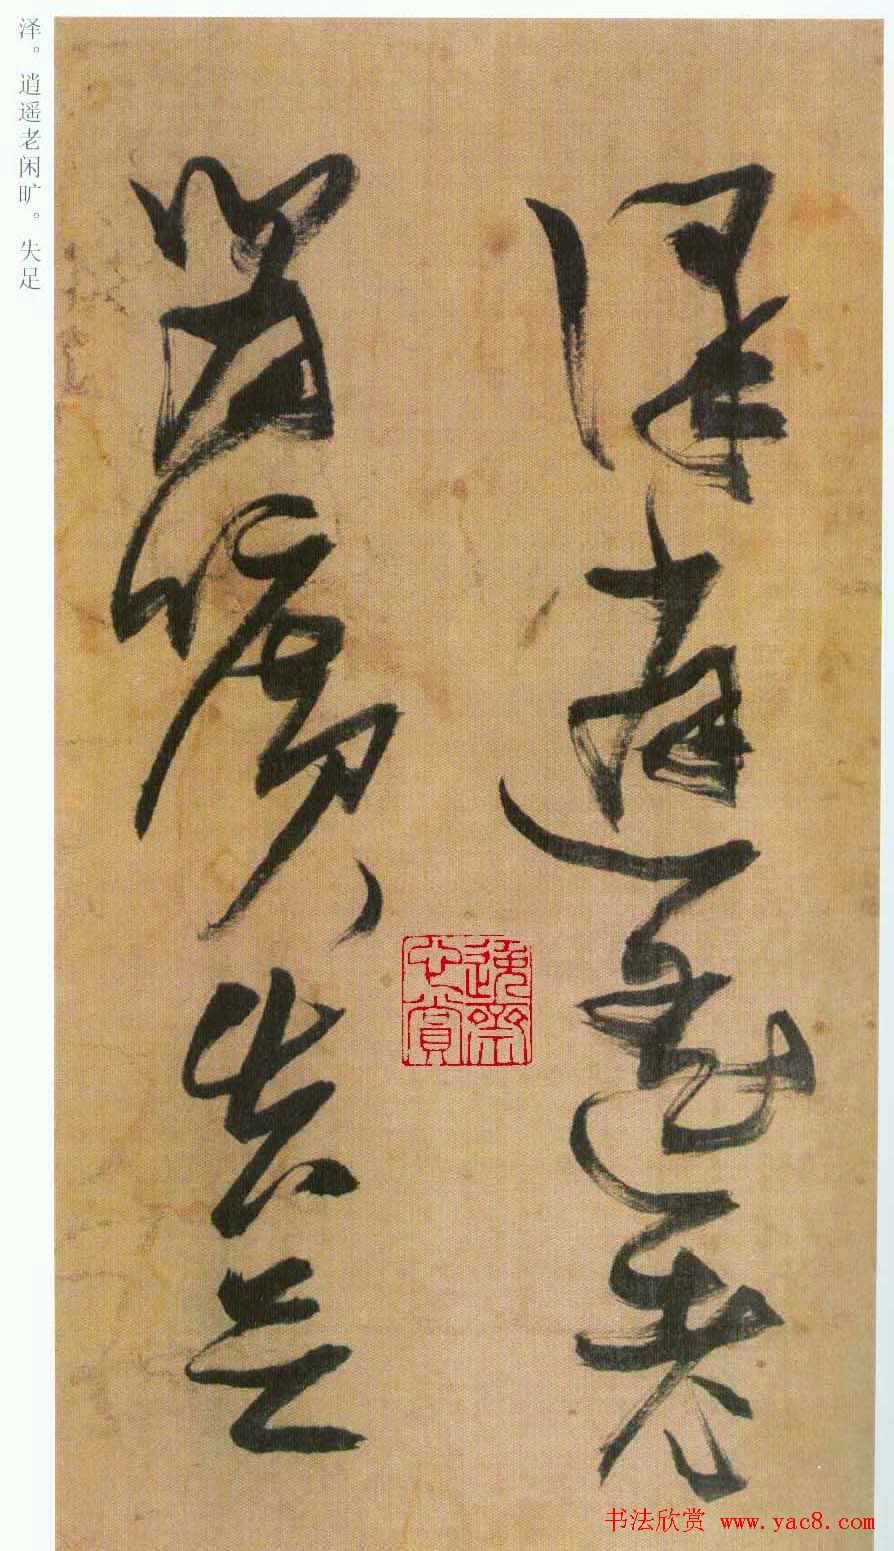 澤逍遥老
閑曠失足
泽。逍遥老闲旷。失足
书法欣赏 www.yac8.com